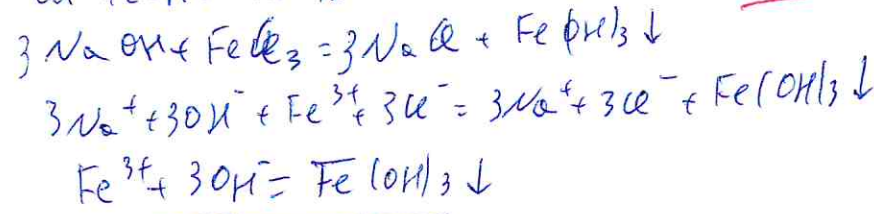 3NaOH + FeCl₃ = 3NaCl + Fe(OH)₃↓
3Na⁺ + 3OH⁻ + Fe³⁺ + 3Cl⁻ = 3Na⁺ + 3Cl⁻ + Fe(OH)₃↓
Fe³⁺ + 3OH⁻ = Fe(OH)₃↓